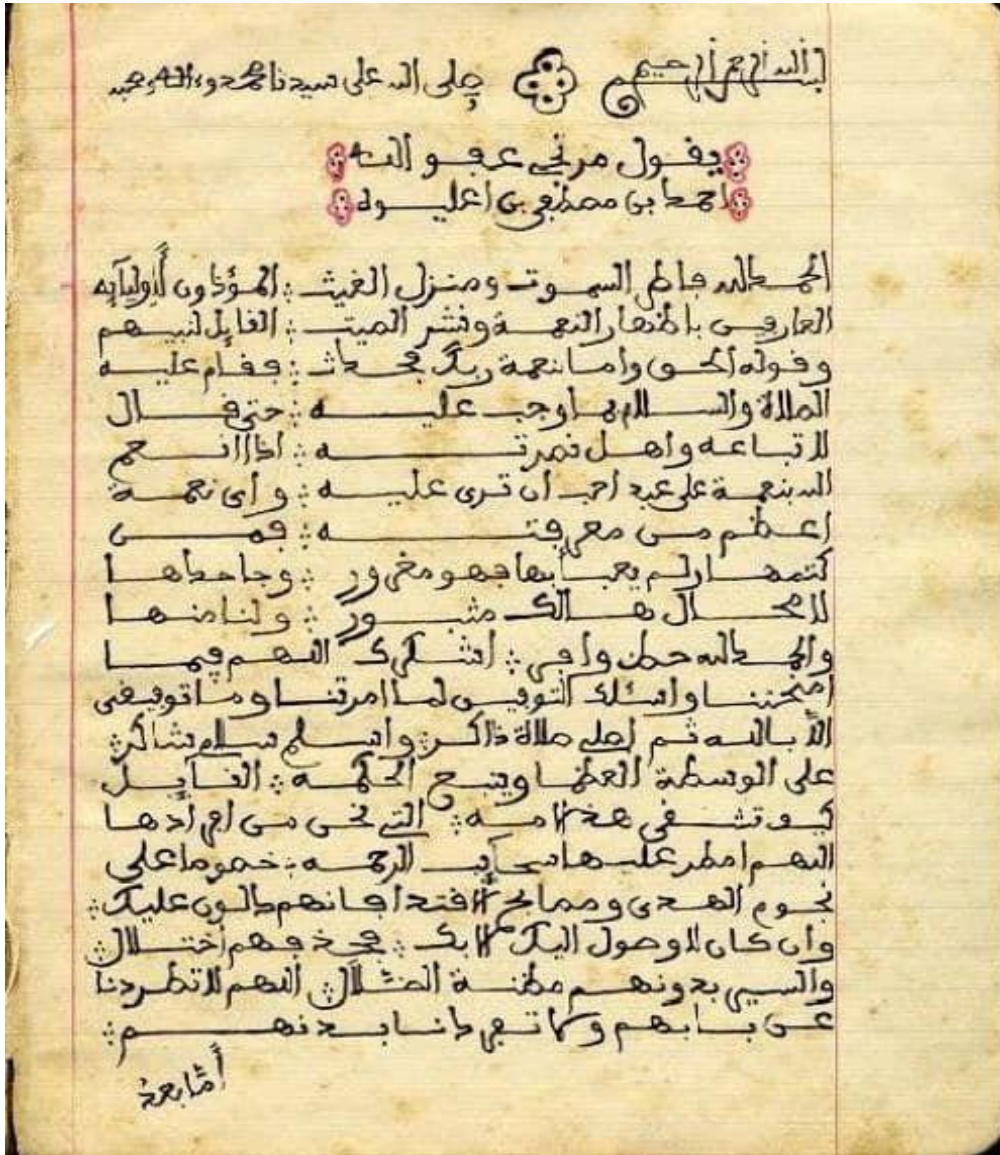 بسم الله الرحمن الرحيم صلى الله على سيدنا محمد وءاله وصحبه
يقول مرتجي عفو الله
احمد بن مصطفى بن اعليوه
الحمد لله فاطر السموت ومنزل الغيث المؤذن لأوليآيه
العارفين باظهار النعمة ونشر الميت القايل لنبيهم
وقوله الحق واما بنعمة ربك فحدث فقام عليه
الصلاة والسلام بما وجب عليه حتى قال
لاتباعه واهل نصرته اذا انعم
الله بنعمة على عبد احب ان ترى عليه وأى نعمة
اعظم من معرفته فمن
كتمها ولم يعبأ بها فهو مغرور وجاحدها
لا محال هالك مثبور ولنا منها
والحمد لله حظ وافي اشكرك اللهم فيما
امنحتنا واسئلك التوفيق لما امرتنا وما توفيقى
الا بالله ثم اصلى صلاة ذاكر واسلم سلام شاكر
على الوسطة العظما وينبع الحكمه القآيل
كيف تشقى هذه الامه التي نحن من افرادها
اللهم امطر عليها سحآيب الرحمه خصوصا على
نجوم الهدى ومصابح الاقتدا فانهم دالون عليك
وان كان لا وصول اليك الا بك فخذ فهم اختلال
والسير بدونهم مظنة الضلال اللهم لا تطردنا
عن بابهم وكما تعر دانا بدنهم
أما بعد